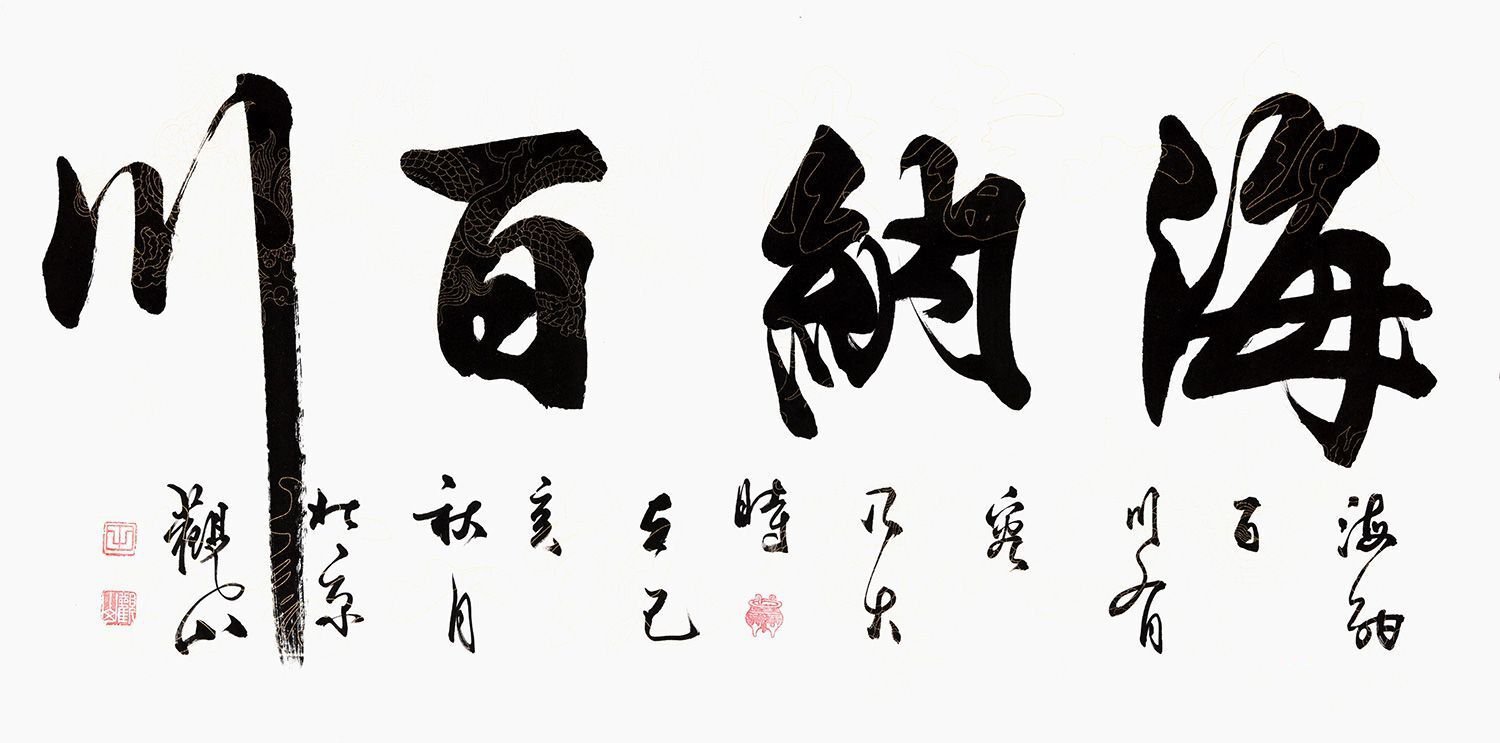 海納百川
海納
百
川有
容
乃大
時
在己
亥
秋月
於京
觀山